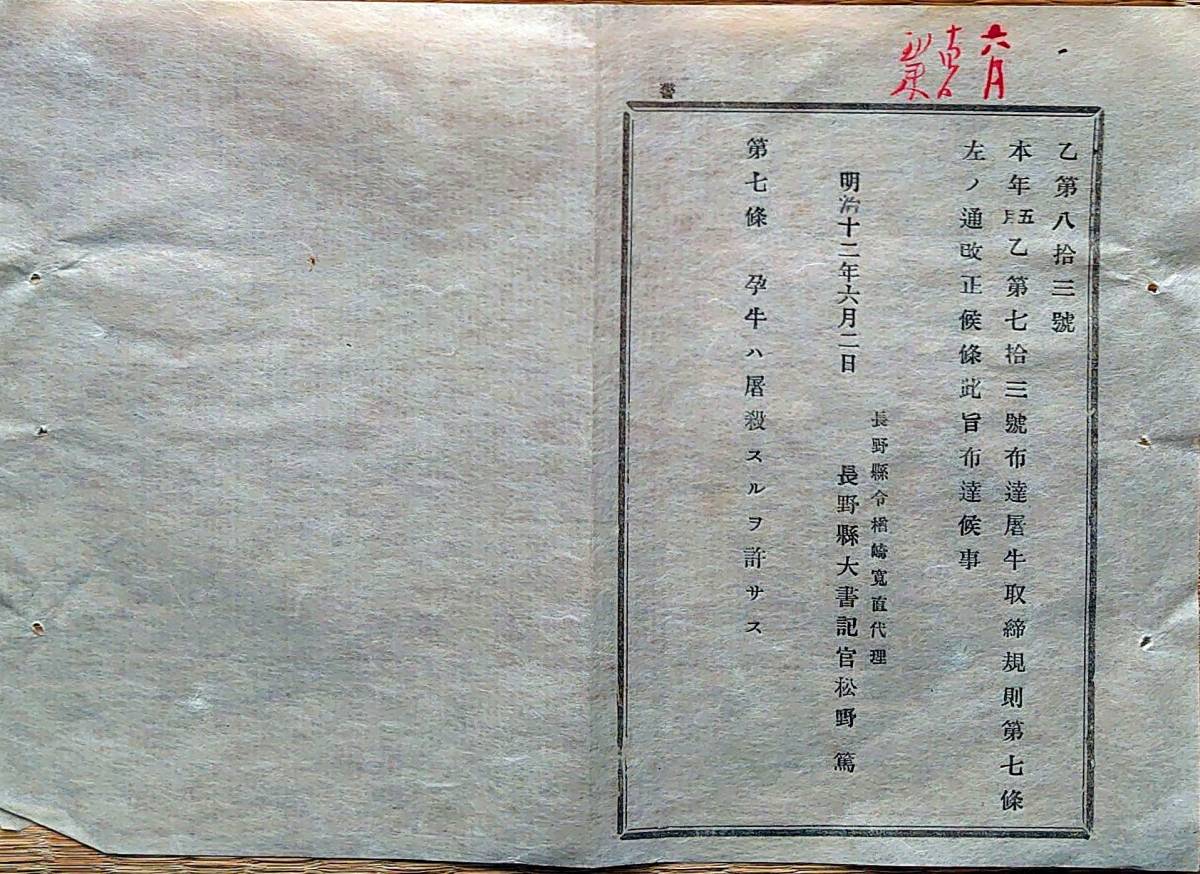 六月
乙第八拾三號
本年五月乙第七拾三號布達屠牛取締規則第七條
左ノ通改正候條此旨布達候事
明治十二年六月二日
長野縣令楢崎寬直代理
長野縣大書記官松野篤
第七條 孕牛ハ屠殺スルヲ許サス